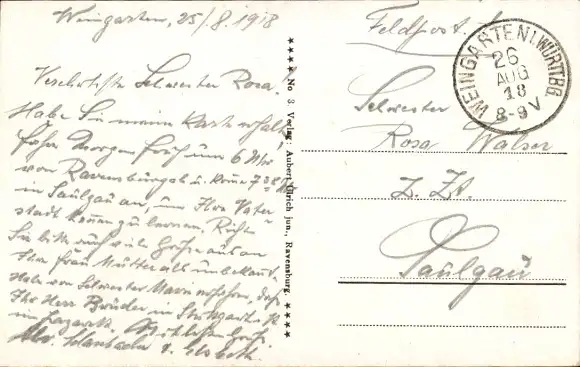 Weingarten, 25/.8.1918
Verehrteste Schwester Rosa!
Habe Sie meine Karte erhalt.
fahre Morgen früh um 6 Uhr
von Ravensburg ab u. komme 7 38
in Saulgau an, um Ihre Vater-
stadt kennen zu lernen. Richt
Sie bitte auch viele Grüße aus an
Ihre Frau Mutter als unbekannt.
Habe von Schwester Maria erfahren, daß
Ihr Herr Bruder in Stuttgart ist
im Lazarett. Grüß
★★★★ No 3. Verlag: Aubert Ulrich jun., Ravensburg. ★★★★
Feldpost.
WEINGARTEN (WÜRTTBG.
26
AUG
18
8-9 V
Schwester
Rosa Walser
z. Zt.
Saulgau